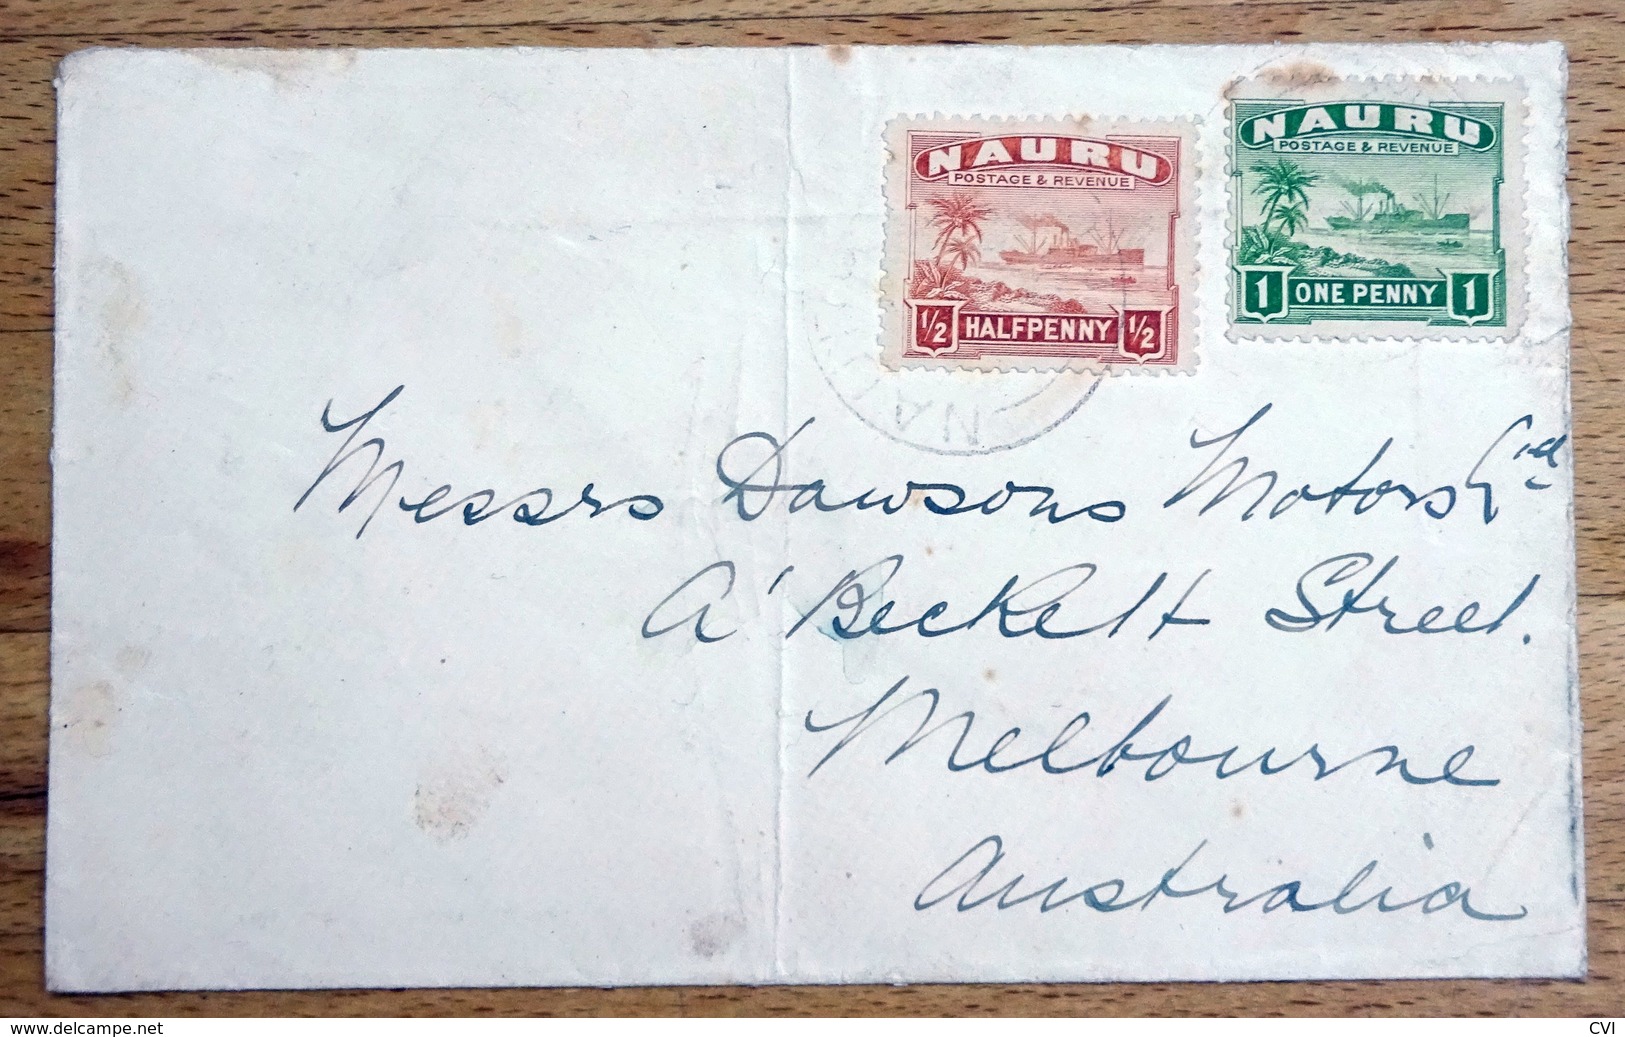 NAURU
POSTAGE & REVENUE
1/2 HALFPENNY 1/2
NAURU
POSTAGE & REVENUE
1 ONE PENNY 1
Messrs Dawsons Motors Ltd
A'Beckett Street.
Melbourne
Australia
www.delcampe.net
CVI